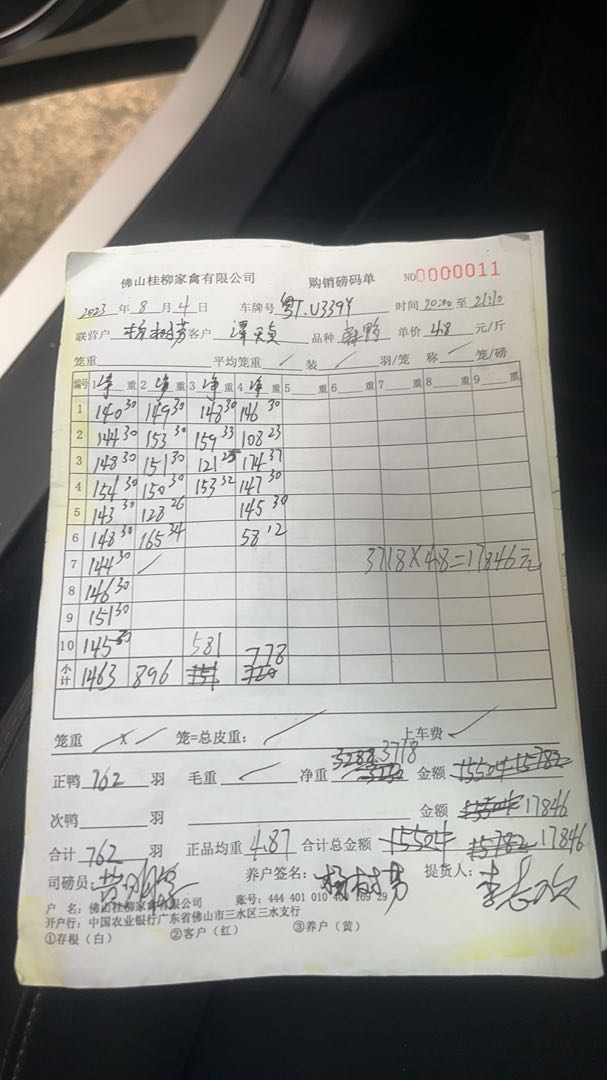 佛山桂柳家禽有限公司 购销磅码单 NO0000011
2023 年 8 月 4 日 车牌号 粤T.U339Y 时间 20:00 至 21:10
联营户 客户 品种 单价 4.8 元/斤
笼重 平均笼重 ✓ 装 ✓ 羽/笼 称 ✓ 笼/磅
编号 1 净 重 2 净 重 3 净 重 4 净 重 5 重 6 重 7 重 8 重 9 重
1 140 30 149 30 148 30 146 30
2 144 30 153 30 159 33 108 23
3 148 30 151 30 121 25 174 37
4 154 30 150 30 153 32 147 30
5 143 30 128 26 145 30
6 148 30 165 34 58 12
7 144 30 3718×4.8=17846元
8 146 30
9 151 30
10 145 30 581 778
小计 1463 896
笼重 × 笼=总皮重: 上车费
3718
正鸭 762 羽 毛重 ✓ 净重 金额
次鸭 羽 金额 17846
合计 762 羽 正品均重 4.87 合计总金额 17846
司磅员: 养户签名: 提货人:
户 名: 佛山桂柳家禽有限公司 账号: 444 401 010 40 169 29
开户行: 中国农业银行广东省佛山市三水区三水支行
①存根（白） ②客户（红） ③养户（黄）